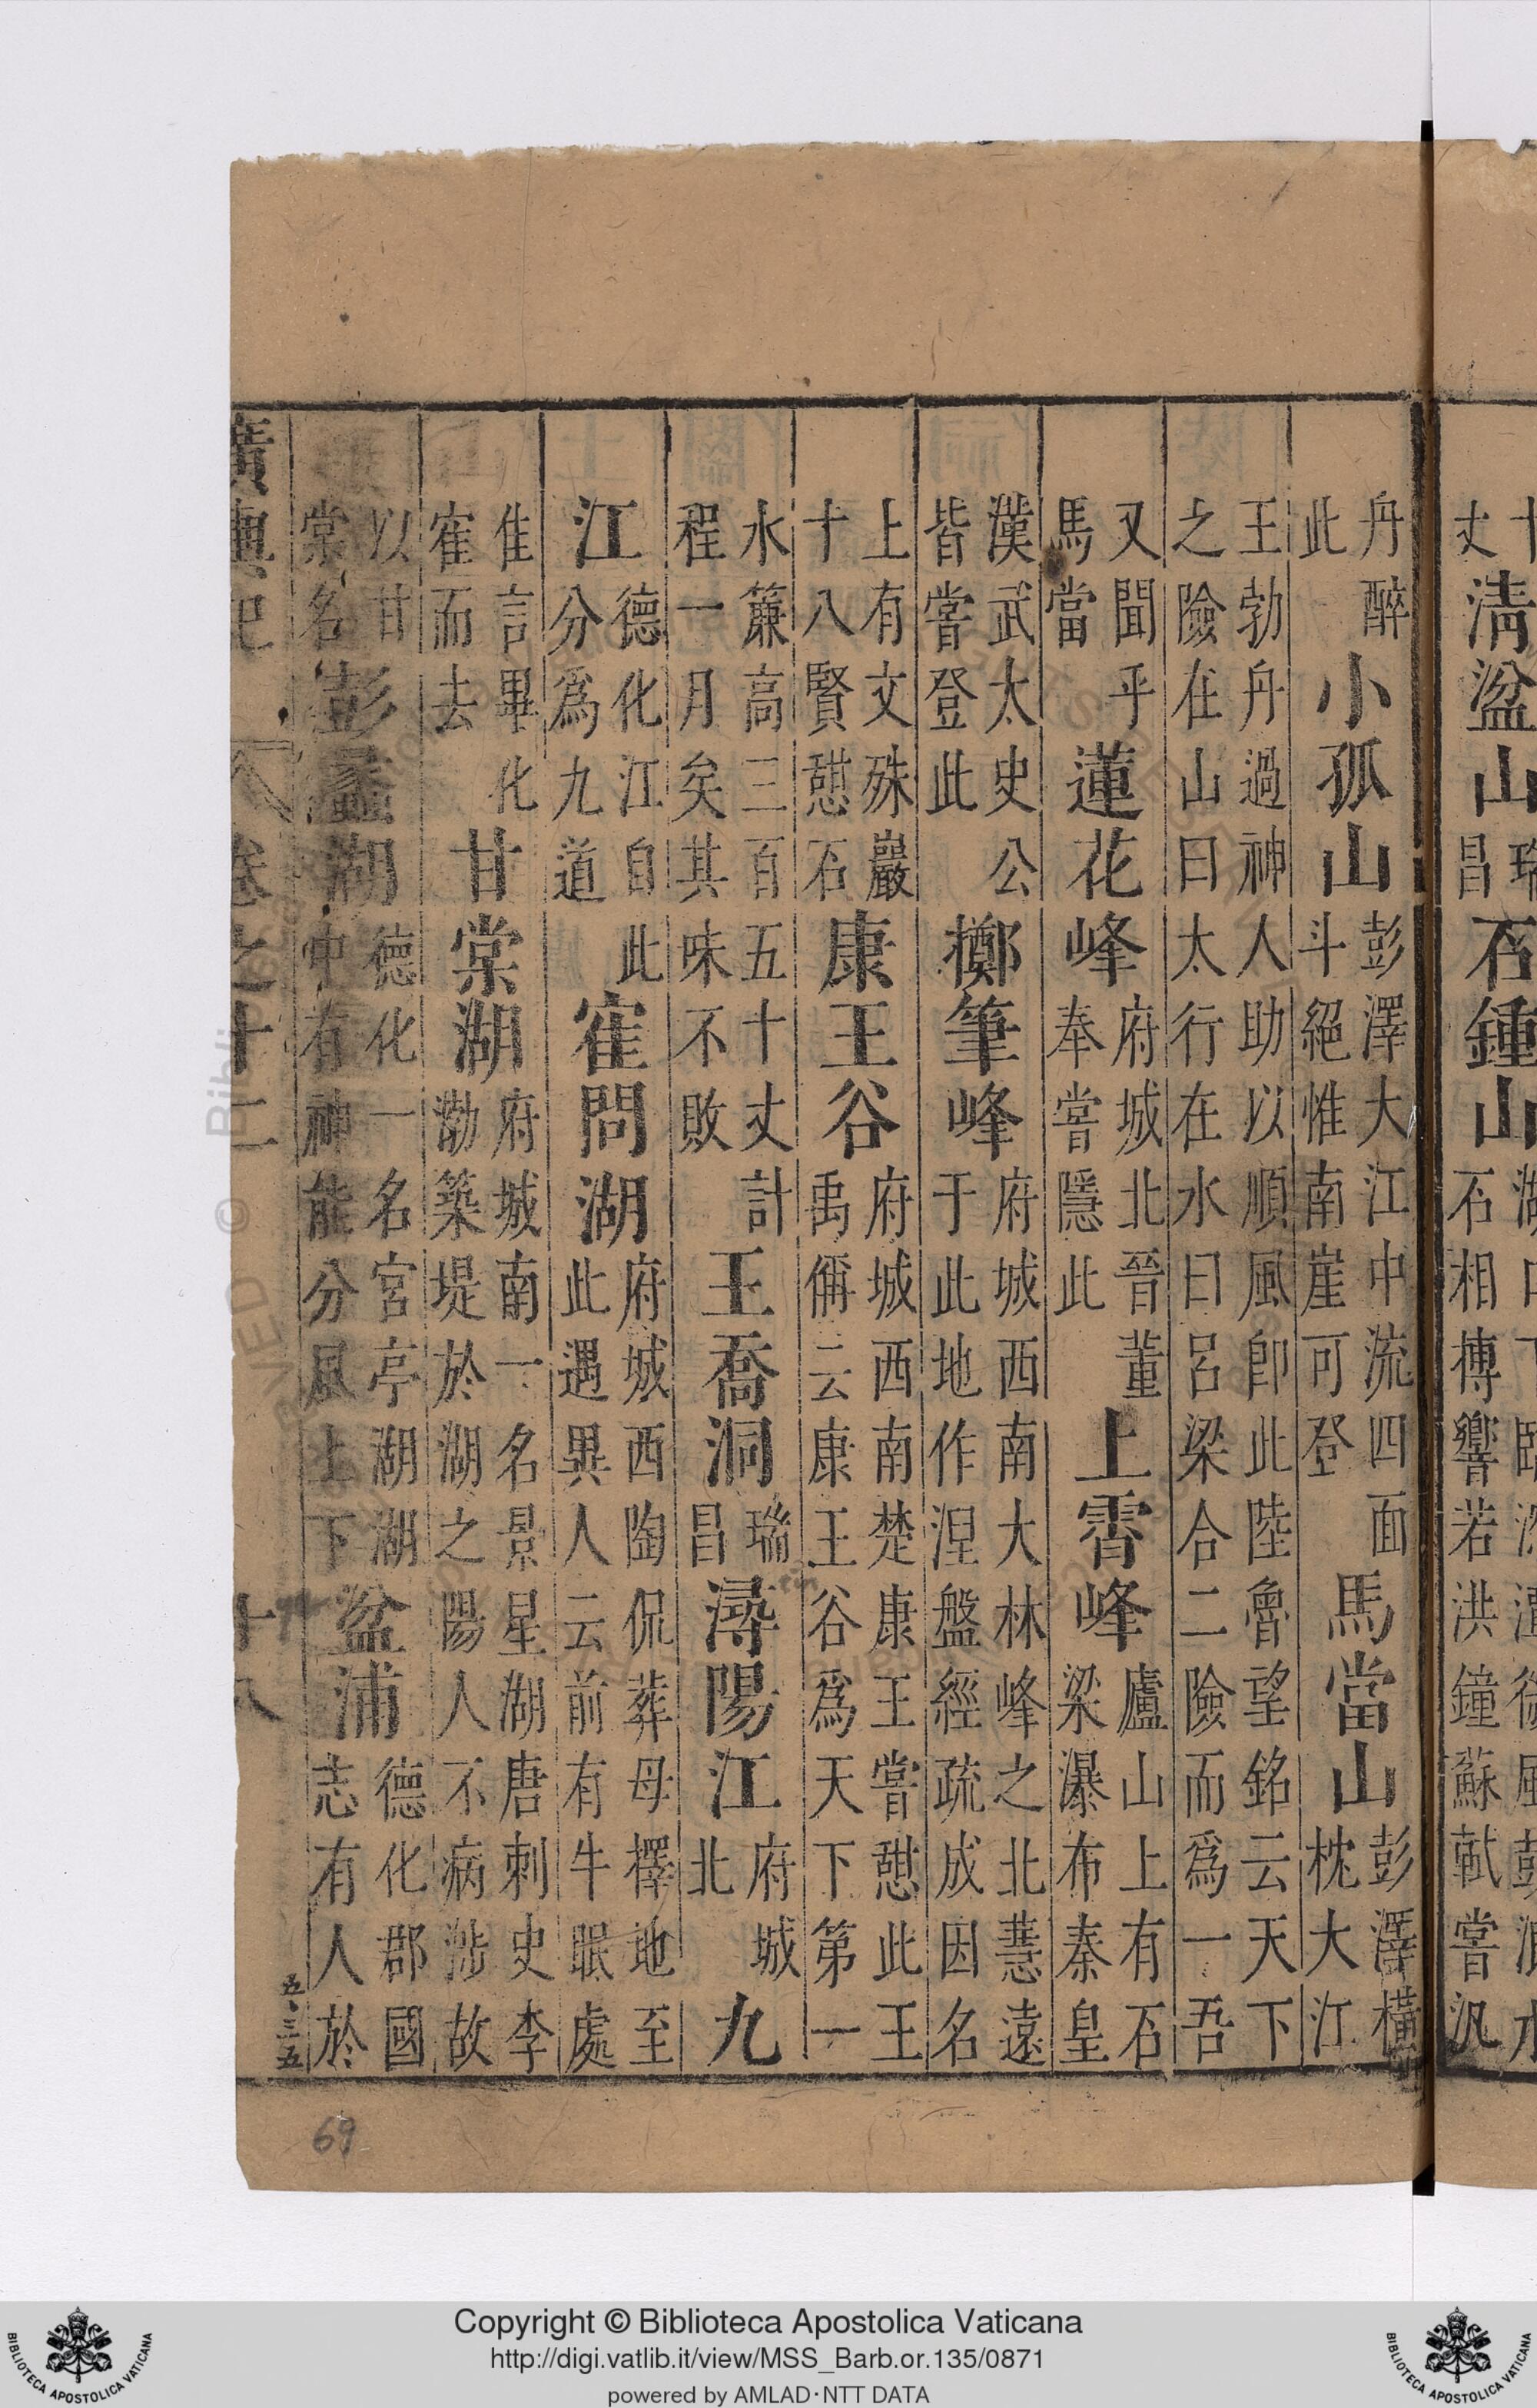 清盆山石鍾山石相搏響若洪鐘蘇軾嘗汎
丹醉
此
小孤山
彭澤大江中流四面
斗絕惟南崖可登
馬當山
彭澤橫
枕大江
王勃舟過神人助以順風即此陸魯望銘云天下
之險在山曰太行在水曰呂梁合二險而爲一吾
又聞乎
馬當
蓮花峰
府城北晉董
奉嘗隱此
上霄峰
廬山上有石
梁瀑布秦皇
漢武太史公
皆嘗登此
擲筆峰
府城西南大林峰之北慧遠
于此地作涅盤經疏成因名
上有文殊巖
十八賢憇石
康王谷
府城西南楚康王嘗憇此王
禹偁云康王谷爲天下第一
水簾高三百五十丈計
程一月矣其味不敗
王喬洞
瑞
昌
潯陽江
府城
北
九
江
德化江自此
分爲九道
寉問湖
府城西陶侃葬母擇地至
此遇異人云前有牛眠處
隹言畢化
寉而去
甘棠湖
府城南一名景星湖唐刺史李
渤築堤於湖之陽人不病涉故
以甘
棠名
彭蠡湖
德化一名宮亭湖湖
中有神能分風上下
盆浦
德化郡國
志有人於
廣輿記
卷之十二
十八
五三五
69
Copyright © Biblioteca Apostolica Vaticana
http://digi.vatlib.it/view/MSS_Barb.or.135/0871
powered by AMLAD·NTT DATA
BIBLIOTECA APOSTOLICA VATICANA
BIBLIOTECA APOSTOLICA VATICANA